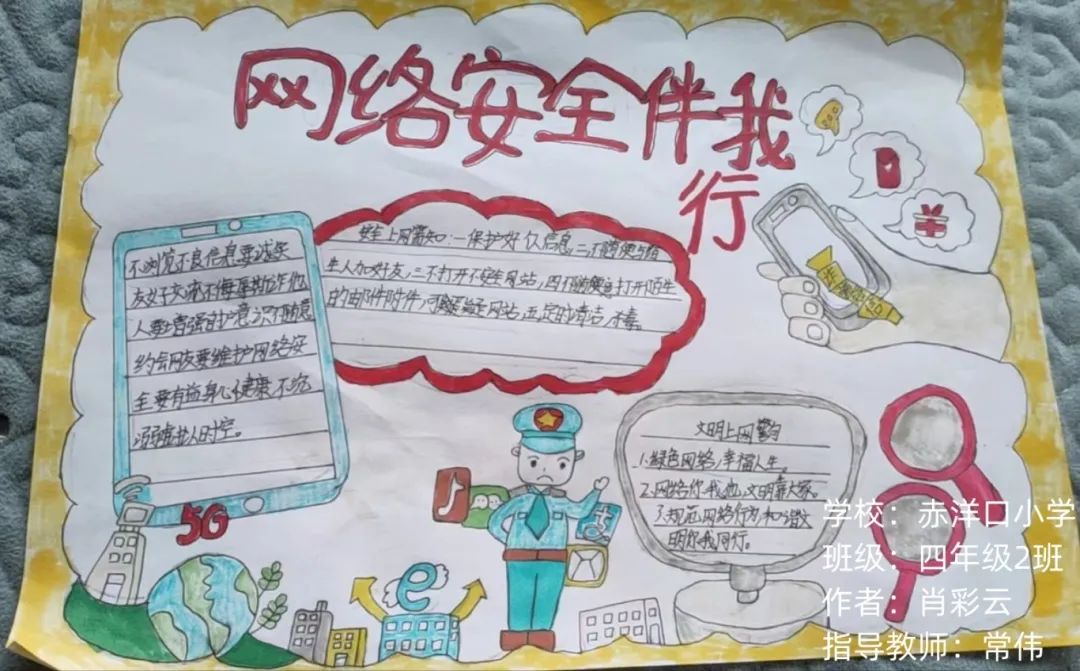 网络安全伴我
行
不浏览不良信息要诚实
友好交流不侮辱欺诈他
人要增强自护意识不随意
约会网友要维护网络安
全要有益身心健康不沉
溺虚拟时空。
安全上网需知:一保护好个人信息,二不随便与陌
生人加好友,三不打开不安全网站,四不随意打开陌生
的由附件附件,可疑网站,五定时清洁,木毒。
文明上网
1.绿色网络,幸福人生。
2.网络你我他,文明靠大家。
3.规范网络行为和谐文
明你我同行。
5G
e
支
学校：赤洋口小学
班级：四年级2班
作者：肖彩云
指导教师：常伟